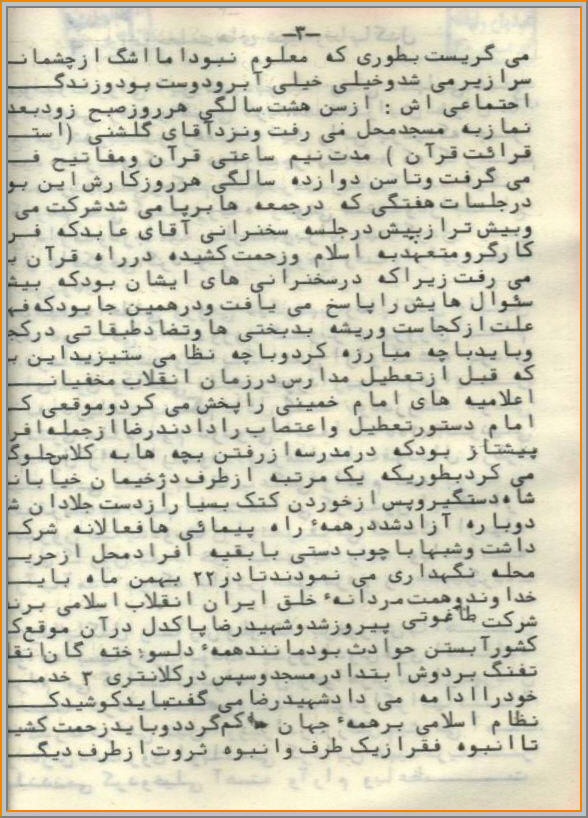 -۳-
می گریست بطوری که معلوم نبود اما اشگ ازچشمانـ
سرازیرمی شدوخیلی خیلی آبرودوست بودوزندگـ
اجتماعی اش : ازسن هشت سالگی هرروزصبح زودبعد
نمازبه مسجدمحل می رفت ونزدآقای گلشنی (استـ
قرائت قرآن ) مدت نیم ساعتی قرآن ومفاتیح فـ
می گرفت وتاسن دوازده سالگی هرروزکارش این بو
درجلسات هفتگی که درجمعه هابرپامی شدشرکت می
وبیش ترازپیش درجلسه سخنرانی آقای عابدکه فـر
کارگرومتعهدبه اسلام وزحمت کشیده درراه قرآن بـ
می رفت زیراکه درسخنرانی های ایشان بودکه بیشـ
سئوال هایش راپاسخ می یافت ودرهمین جابودکه فهـ
علت ازکجاست وریشه بدبختی هاوتضادطبقاتی درکجـ
وبایدباچه مبارزه کردوباچه نظامی ستیزیداین بـ
که قبل ازتعطیل مدارس درزمان انقلاب مخفیانـ
اعلامیه های امام خمینی راپخش می کردوموقعی کـ
امام دستورتعطیل واعتصاب رادادندرضاازجمله افر
پیشتاز بودکه درمدرسه ازرفتن بچه هابه کلاس جلوگـ
می کردبطوریکه یک مرتبه ازطرف دژخیمان خیابانـ
شاه دستگیروپس ازخوردن کتک بسیارازدست جلادان شـ
دوباره آزادشددرهمهٔ راه پیمائی هافعالانه شرکـ
داشت وشبهاباچوب دستی بابقیه افرادمحل ازحریـ
محله نگهداری می نمودندتادر۲۲ بهمن ماه بایـ
خداوندوهمت مردانهٔ خلق ایران انقلاب اسلامی برنـ
شرکت طاغوتی پیروزشدوشهیدرضاپاکدل درآن موقع کـ
کشورآبستن حوادث بودمانندهمهٔ دلسوخته گان انقـ
تفنگ بردوش ابتدادرمسجدوسپس درکلانتری ۲ خدمـ
خودراادامه می دادشهیدرضامی گفت بایدکوشیدکـ
نظام اسلامی برهمهٔ جهان کم گرددوبایدزحمت کشیـ
تاانبوه فقرازیک طرف وانبوه ثروت ازطرف دیگـ